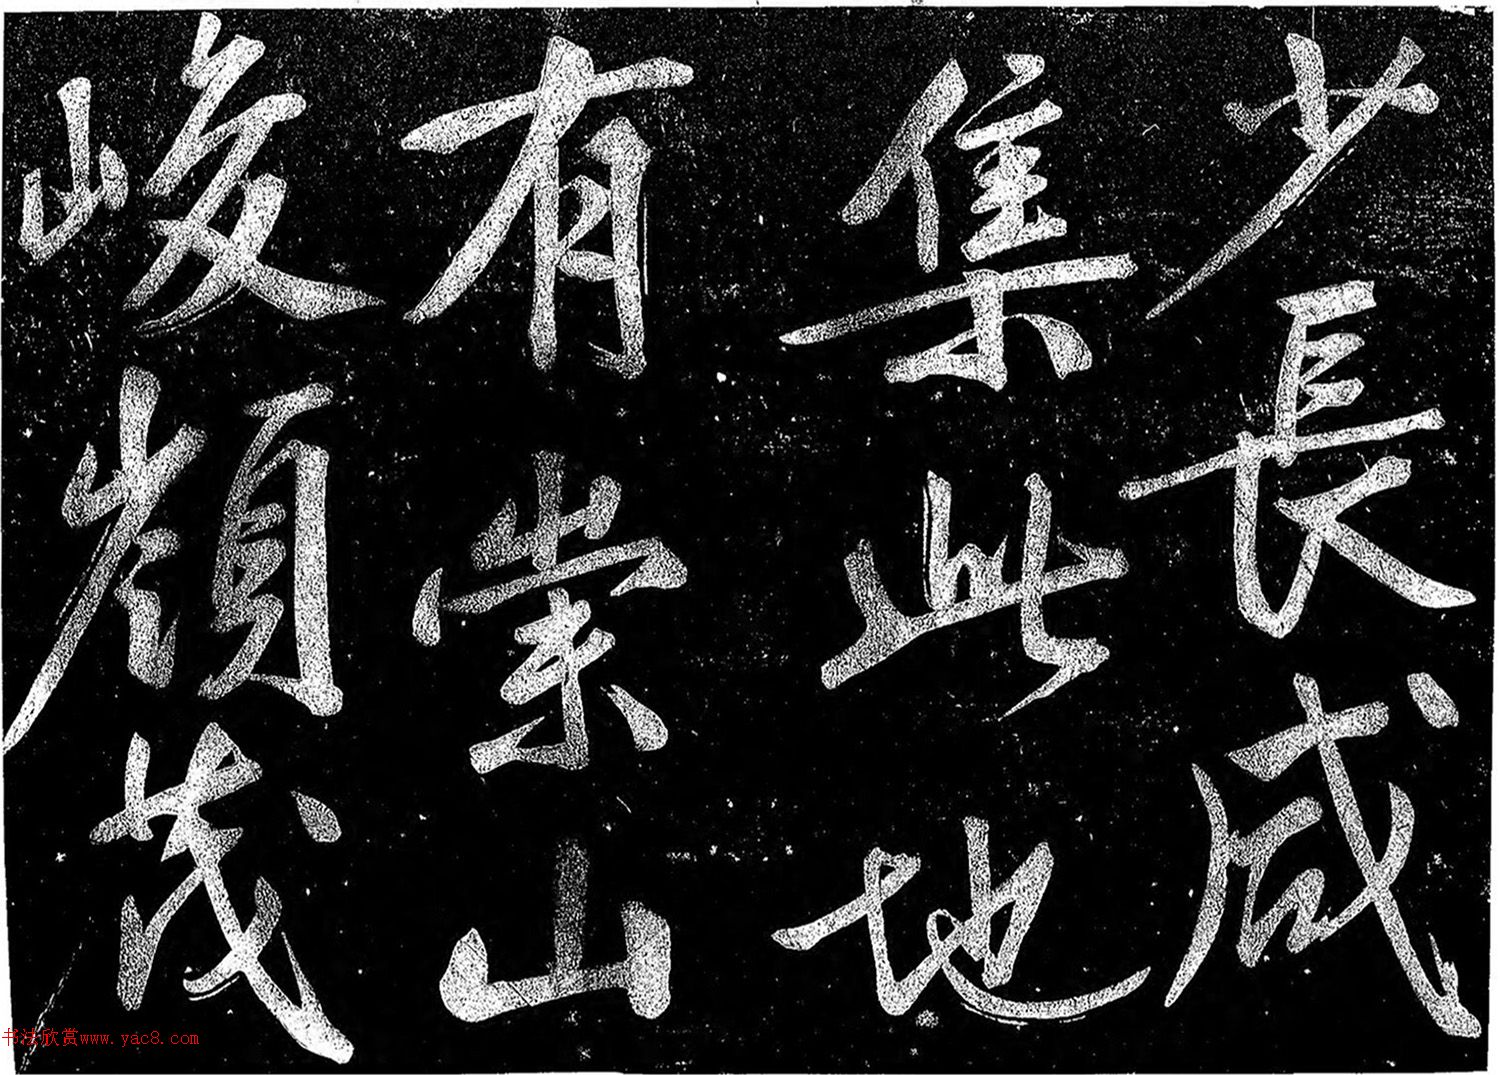 少長咸
集此地
有崇山
峻嶺茂
书法欣赏www.yac8.com